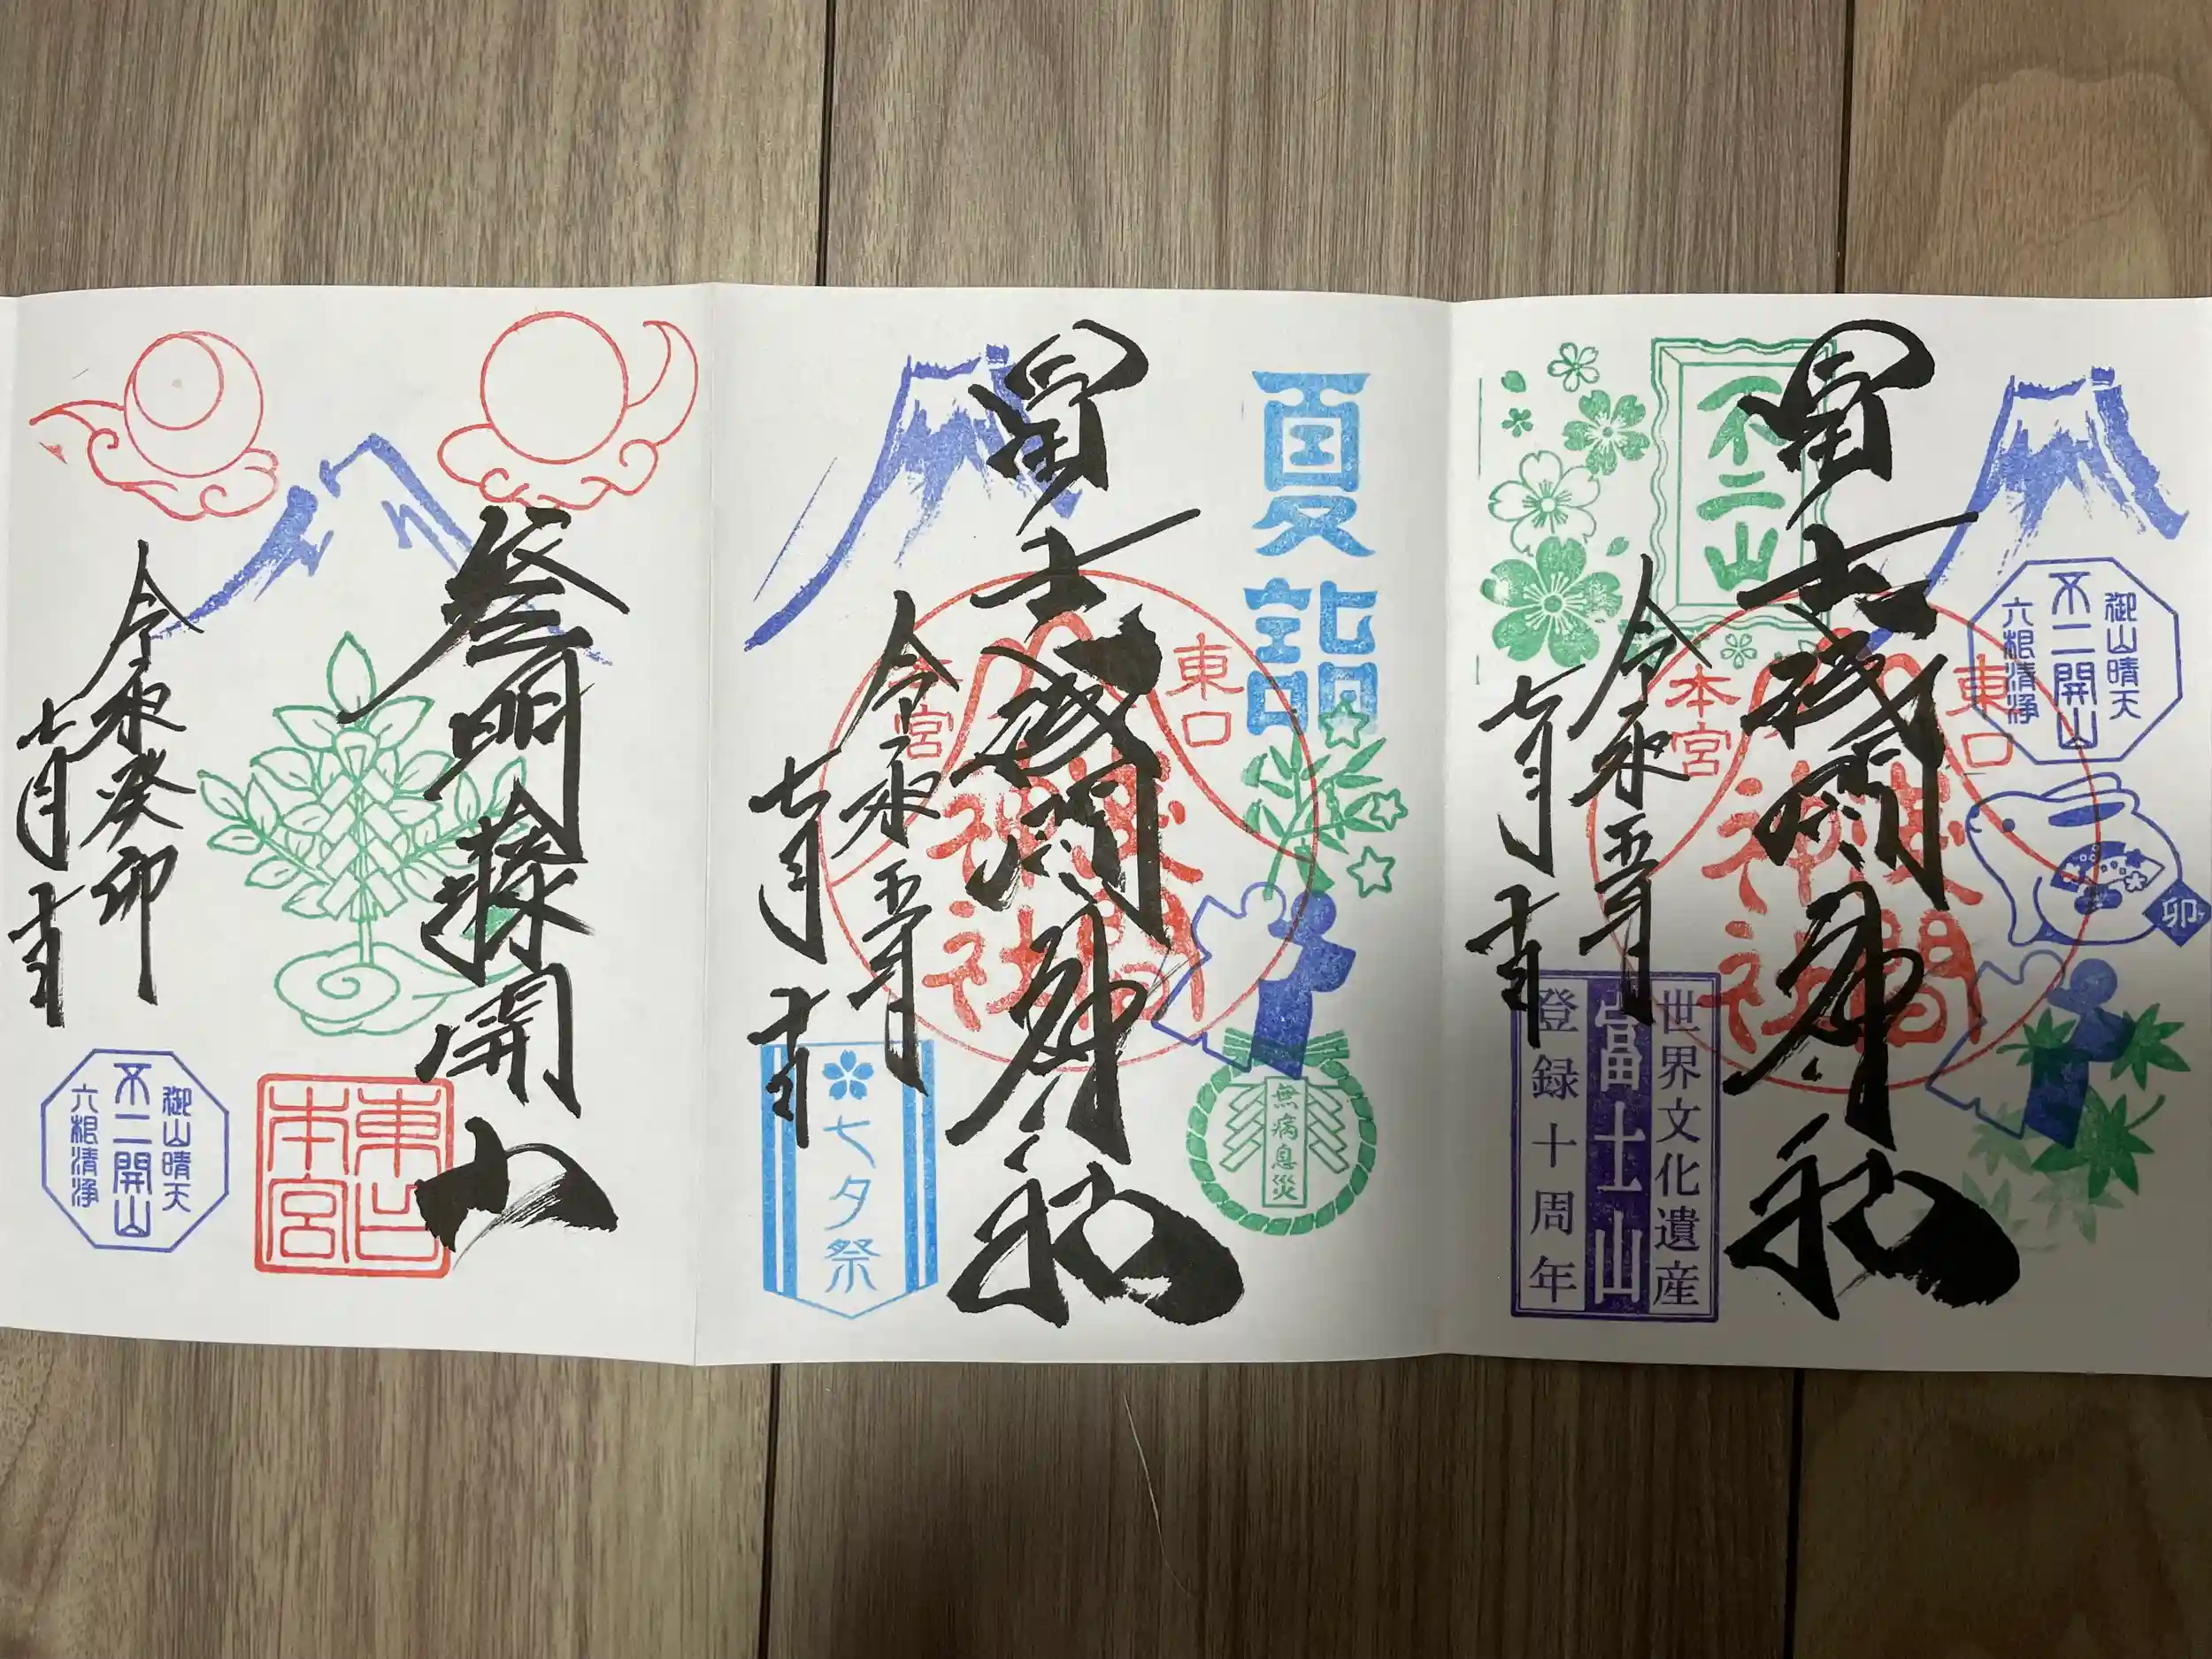 冨士浅間神社
不二山
東口
本宮
淺間
神社
御山晴天
不二開山
六根清浄
卯
令和五年
七月
世界文化遺産
富士山
登録十周年
夏詣
冨士浅間神社
東口
宮
淺間
神社
無病息災
令和五年
七月
七夕祭
参明藤開山
令和癸卯
七月
東口
本宮
御山晴天
不二開山
六根清浄